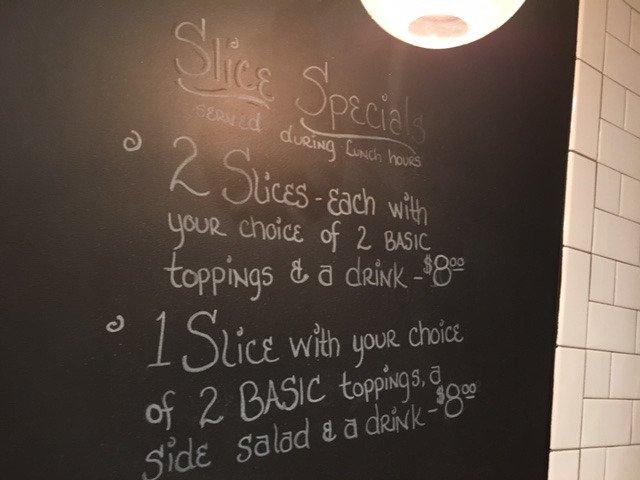 Slice Specials
served during Lunch hours
2 Slices - Each with
your choice of 2 BASIC
toppings & a drink - $8.00
1 Slice with your choice
of 2 BASIC toppings, a
side salad & a drink - $8.00